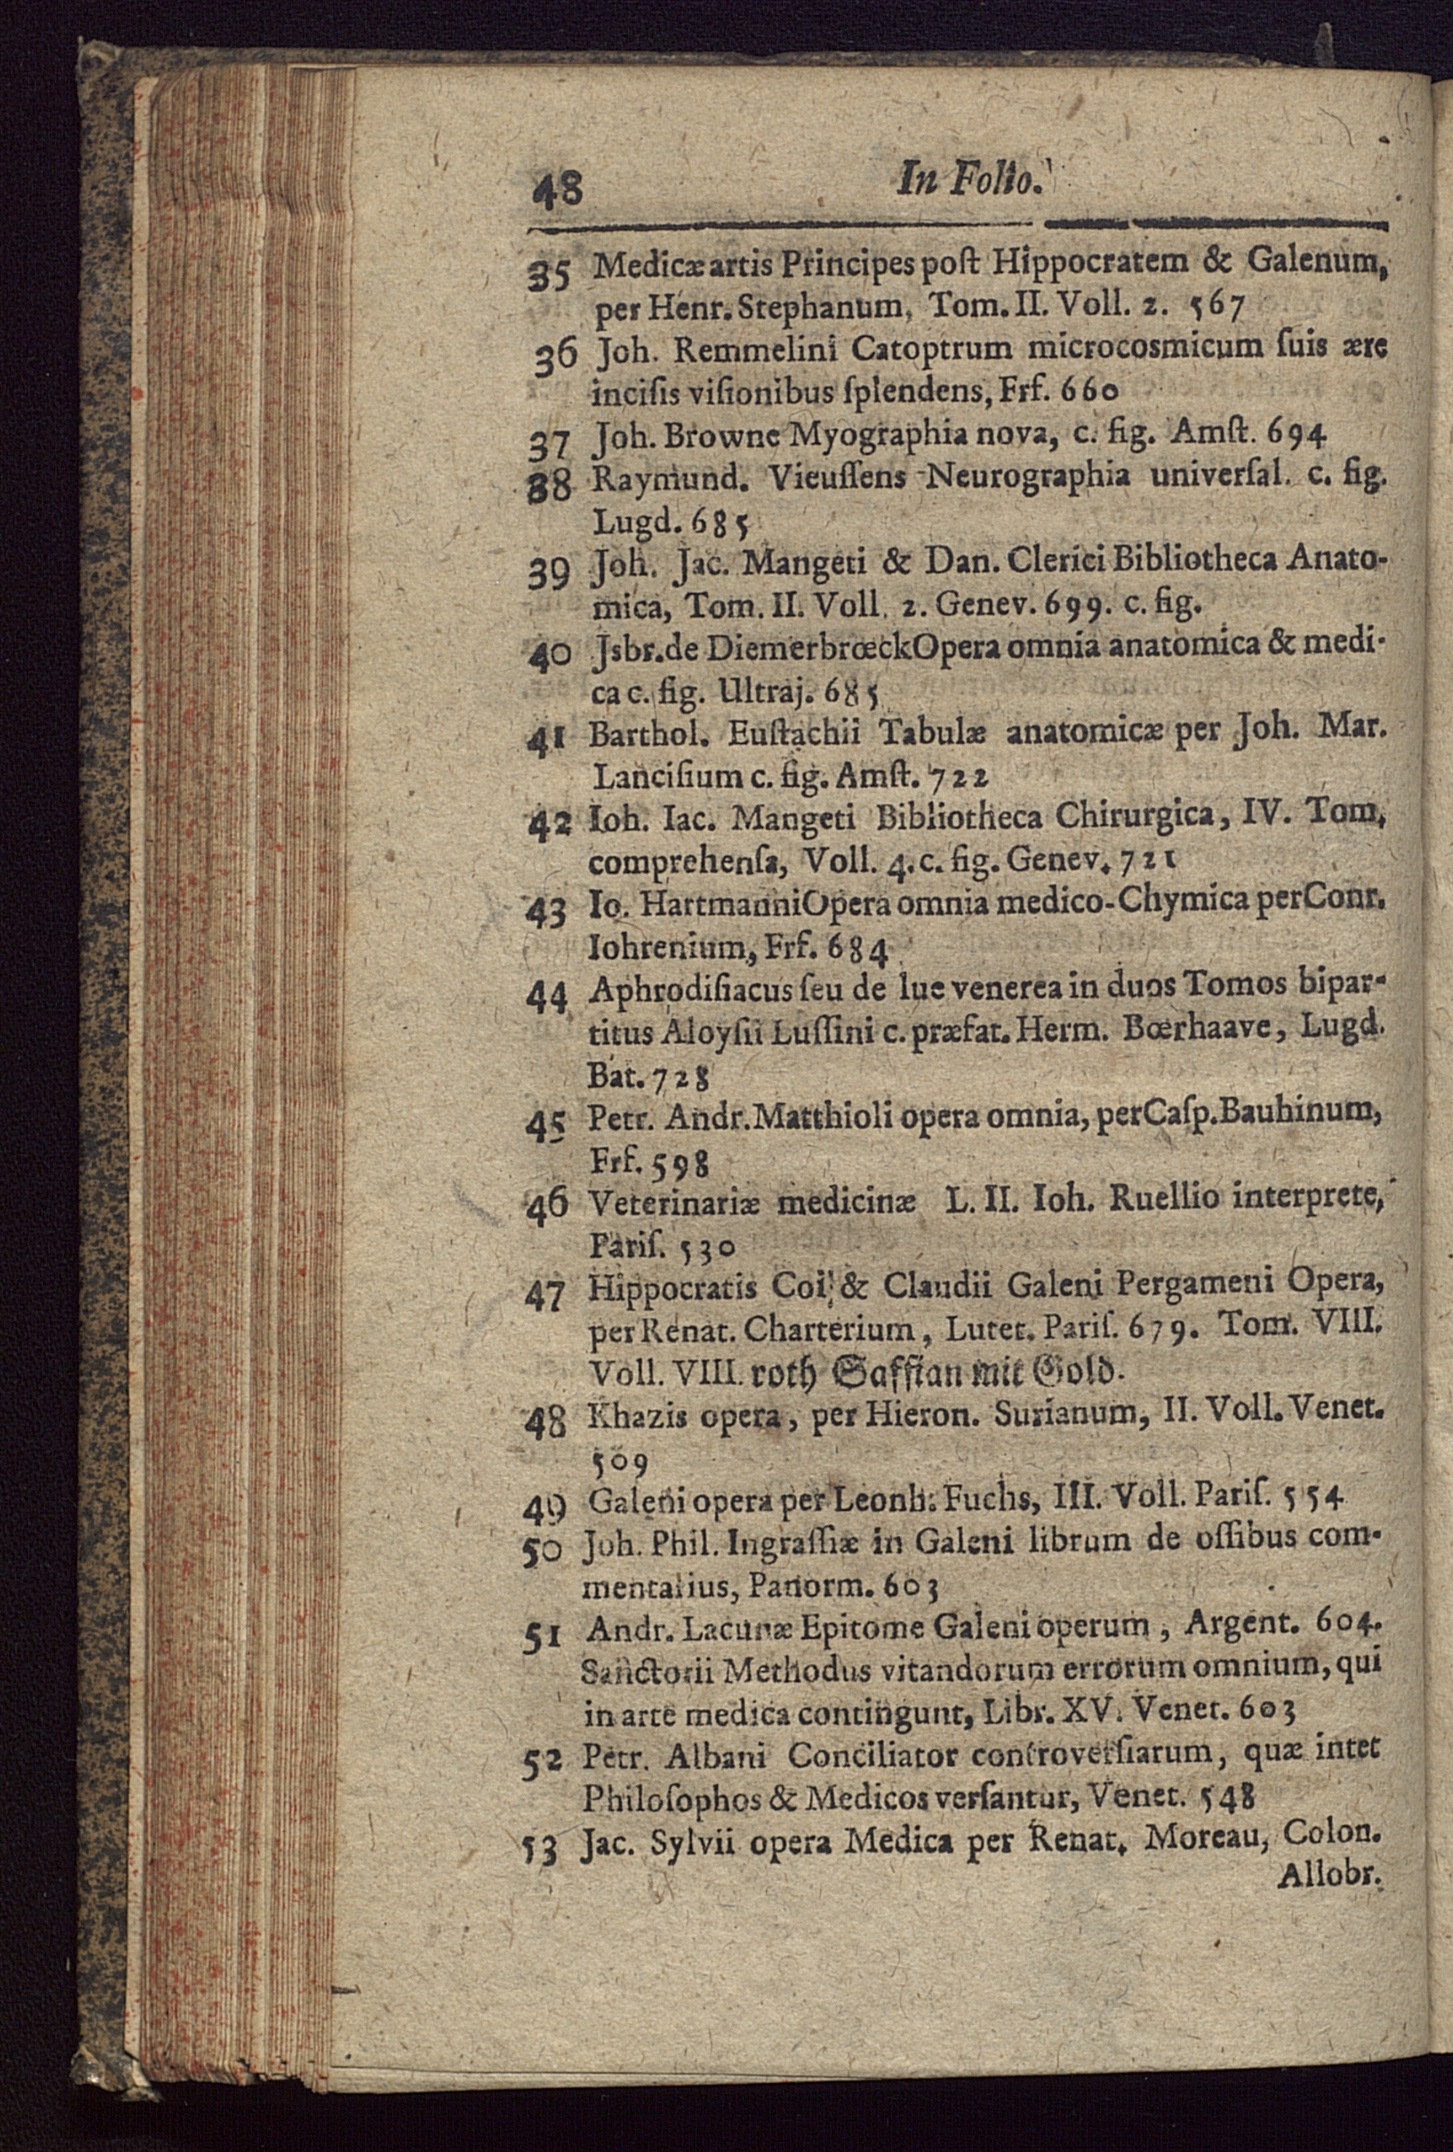 48 In Folio.
35 Medicæ artis Principes poſt Hippocratem & Galenum,
per Henr. Stephanum, Tom. II. Voll. 2. 567
36 Joh. Remmelini Catoptrum microcosmicum ſuis ære
inciſis viſionibus ſplendens, Frf. 660
37 Joh. Browne Myographia nova, c. fig. Amſt. 694
38 Raymund. Vieuſſens Neurographia univerſal. c. fig.
Lugd. 685
39 Joh. Jac. Mangeti & Dan. Clerici Bibliotheca Anato-
mica, Tom. II. Voll. 2. Genev. 699. c. fig.
40 Jsbr. de Diemerbrœck Opera omnia anatomica & medi-
ca c. fig. Ultraj. 685
41 Barthol. Euſtachii Tabulæ anatomicæ per Joh. Mar.
Lanciſium c. fig. Amſt. 722
42 Ioh. Iac. Mangeti Bibliotheca Chirurgica, IV. Tom,
comprehenſa, Voll. 4. c. fig. Genev. 721
43 Io. Hartmanni Opera omnia medico-Chymica per Conr.
Iohrenium, Frf. 684
44 Aphrodiſiacus ſeu de lue venerea in duos Tomos bipar-
titus Aloyſii Luſſini c. præfat. Herm. Bœrhaave, Lugd.
Bat. 728
45 Petr. Andr. Matthioli opera omnia, per Caſp. Bauhinum,
Frf. 598
46 Veterinariæ medicinæ L. II. Ioh. Ruellio interprete,
Pariſ. 530
47 Hippocratis Coi & Claudii Galeni Pergameni Opera,
per Renat. Charterium, Lutet. Pariſ. 679. Tom. VIII.
Voll. VIII. roth Saffian mit Gold.
48 Rhazis opera, per Hieron. Surianum, II. Voll. Venet.
509
49 Galeni opera per Leonh. Fuchs, III. Voll. Pariſ. 554
50 Joh. Phil. Ingraſſiæ in Galeni librum de oſſibus com-
mentarius, Panorm. 603
51 Andr. Lacunæ Epitome Galeni operum, Argent. 604.
Sanctorii Methodus vitandorum errorum omnium, qui
in arte medica contingunt, Libr. XV. Venet. 603
52 Petr. Albani Conciliator controverſiarum, quæ intet
Philoſophos & Medicos verſantur, Venet. 548
53 Jac. Sylvii opera Medica per Renat. Moreau, Colon.
Allobr.